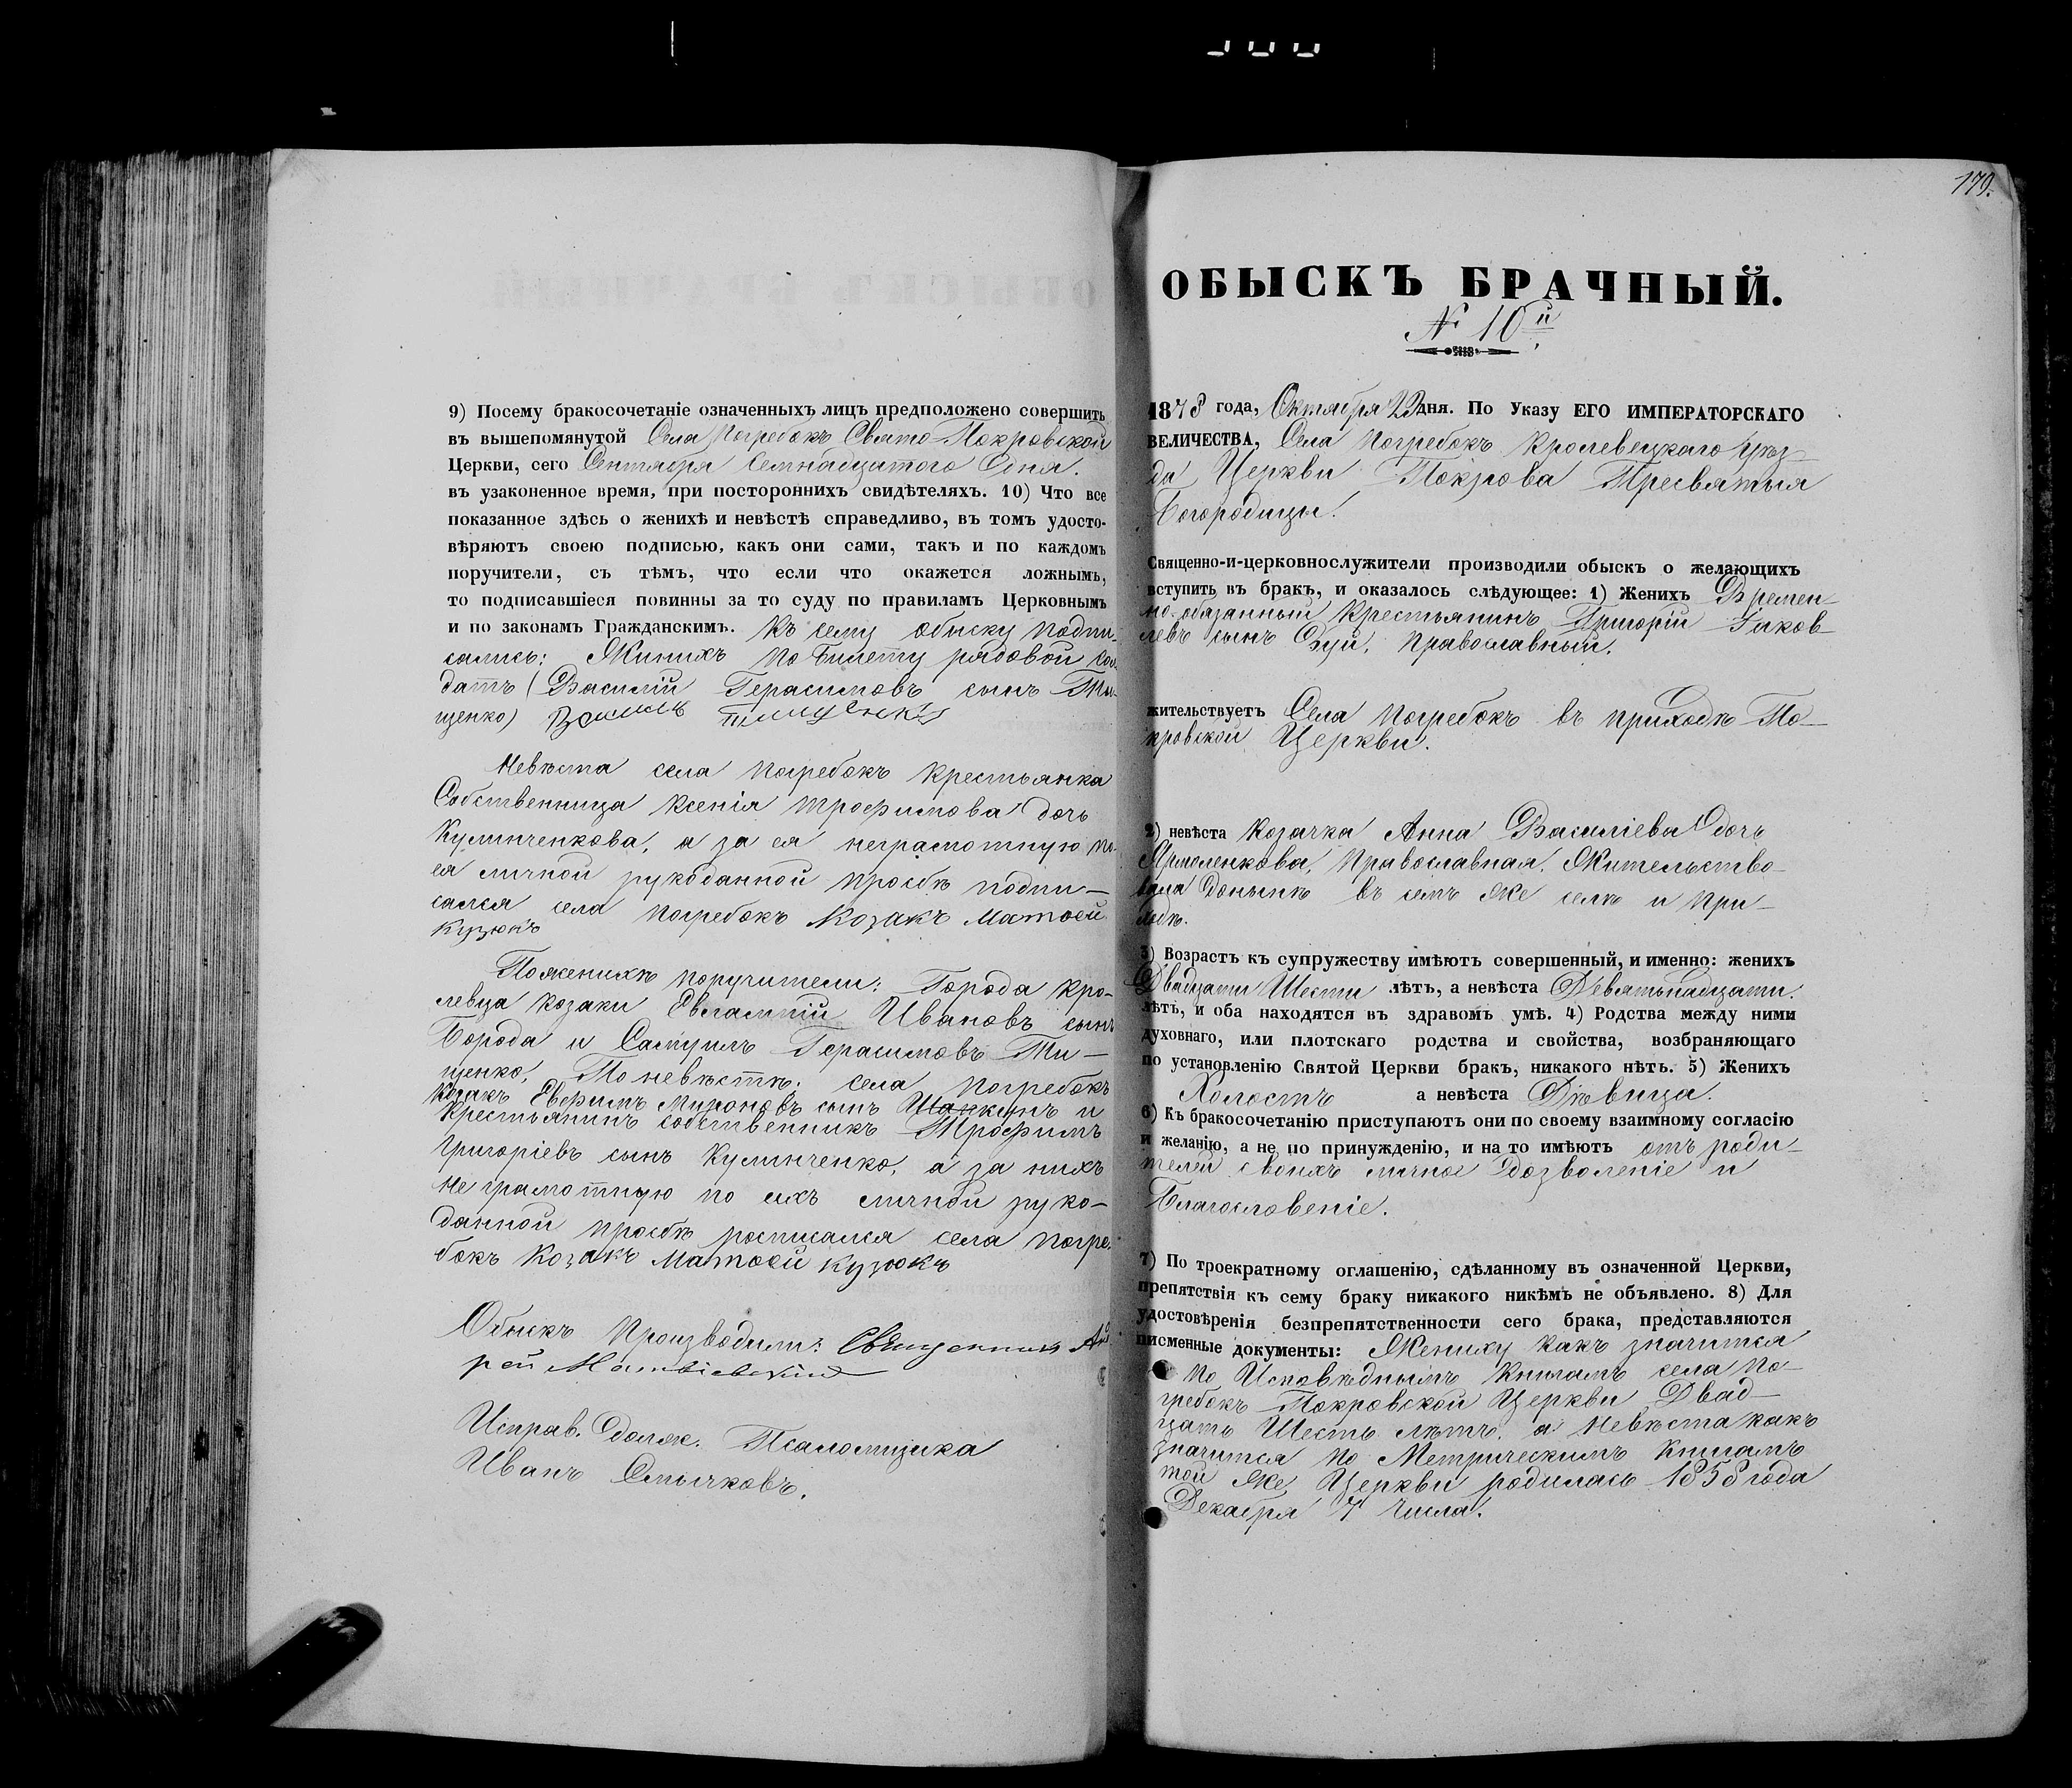 9) Посему бракосочетаніе означенныхъ лицъ предположено совершить
въ вышепомянутой Села Погребокъ Свято-Покровской
Церкви, сего Сентября Семнадцатого Дня.
въ узаконенное время, при постороннихъ свидѣтеляхъ. 10) Что все
показанное здѣсь о женихѣ и невѣстѣ справедливо, въ томъ удосто-
вѣряютъ своею подписью, какъ они сами, такъ и по каждомъ
поручители, съ тѣмъ, что если что окажется ложнымъ,
то подписавшіеся повинны за то суду по правиламъ Церковнымъ
и по законамъ Гражданскимъ. Къ сему обыску подпи-
сались: Жинихъ по билету рядовой сол-
датъ (Василій Герасимовъ сынъ Ти-
щенко)
Невѣста села Погребокъ крестьянка
Собственница Ксенія Трофимова дочь
Кулинченкова, а за ея неграмотную по
ея личной рукоданной просбѣ подпи-
сался села Погребокъ Козакъ Матвей
Кузюкъ
По женихѣ поручители: Города Кро-
левца козаки Евлампій Ивановъ сынъ
Борода и Самуилъ Герасимовъ Ти-
щенко, По невѣстѣ: села Погребокъ
Козакъ Евфимъ Мироновъ сынъ и
Крестьянинъ собственникъ Трофимъ
Григоріевъ сынъ Кулинченко, а за нихъ
не грамотную по ихъ личной руко-
данной просбѣ росписался села Погре-
бокъ Козакъ Матвей Кузюкъ
Обыскъ Производили: Священникъ Анд
рей Матвіевскій
Исправ. Долж. Псаломщика
Иванъ Смычковъ.
179.
ОБЫСКЪ БРАЧНЫЙ.
№ 10й
1878 года, Октября 29 дня. По Указу ЕГО ИМПЕРАТОРСКАГО
ВЕЛИЧЕСТВА, Села Погребокъ Кролевецкаго Уѣз-
да Церкви Покрова Пресвятыя
Богородицы.
Священно-и-церковнослужители производили обыскъ о желающихъ
вступить въ бракъ, и оказалось слѣдующее: 1) Женихъ Времен-
но-обязанный Крестьянинъ Григорій Іаков-
левъ сынъ Зуй, православный.
жительствуетъ Села Погребокъ въ приходѣ По-
кровской Церкви.
2) невѣста Козачка Анна Василіева дочь
Ярмоленкова, Православная, Жительство-
вала донынѣ въ семъ же селѣ и При-
ходѣ.
3) Возрастъ къ супружеству имѣютъ совершенный, и именно: женихъ
Двадцати Шести лѣтъ, а невѣста Девятьнадцати.
лѣтъ, и оба находятся въ здравомъ умѣ. 4) Родства между ними
духовнаго, или плотскаго родства и свойства, возбраняющаго
по установленію Святой Церкви бракъ, никакого нѣтъ. 5) Женихъ
Холостъ а невѣста Дѣвица.
6) Къ бракосочетанію приступаютъ они по своему взаимному согласію
и желанію, а не по принужденію, и на то имѣютъ отъ роди-
телей своихъ личное дозволеніе и
Благословеніе.
7) По троекратному оглашенію, сдѣланному въ означенной Церкви,
препятствія къ сему браку никакого никѣмъ не объявлено. 8) Для
удостовѣренія безпрепятственности сего брака, представляются
писменные документы: Жениху какъ значится
по Исповѣднымъ Книгамъ села По-
гребокъ Покровской Церкви, Двад-
цать Шесть лѣтъ. а Невѣста какъ
значится по Метрическимъ Книгамъ
той же Церкви родилась 1858 года
Декабря 4 числа.